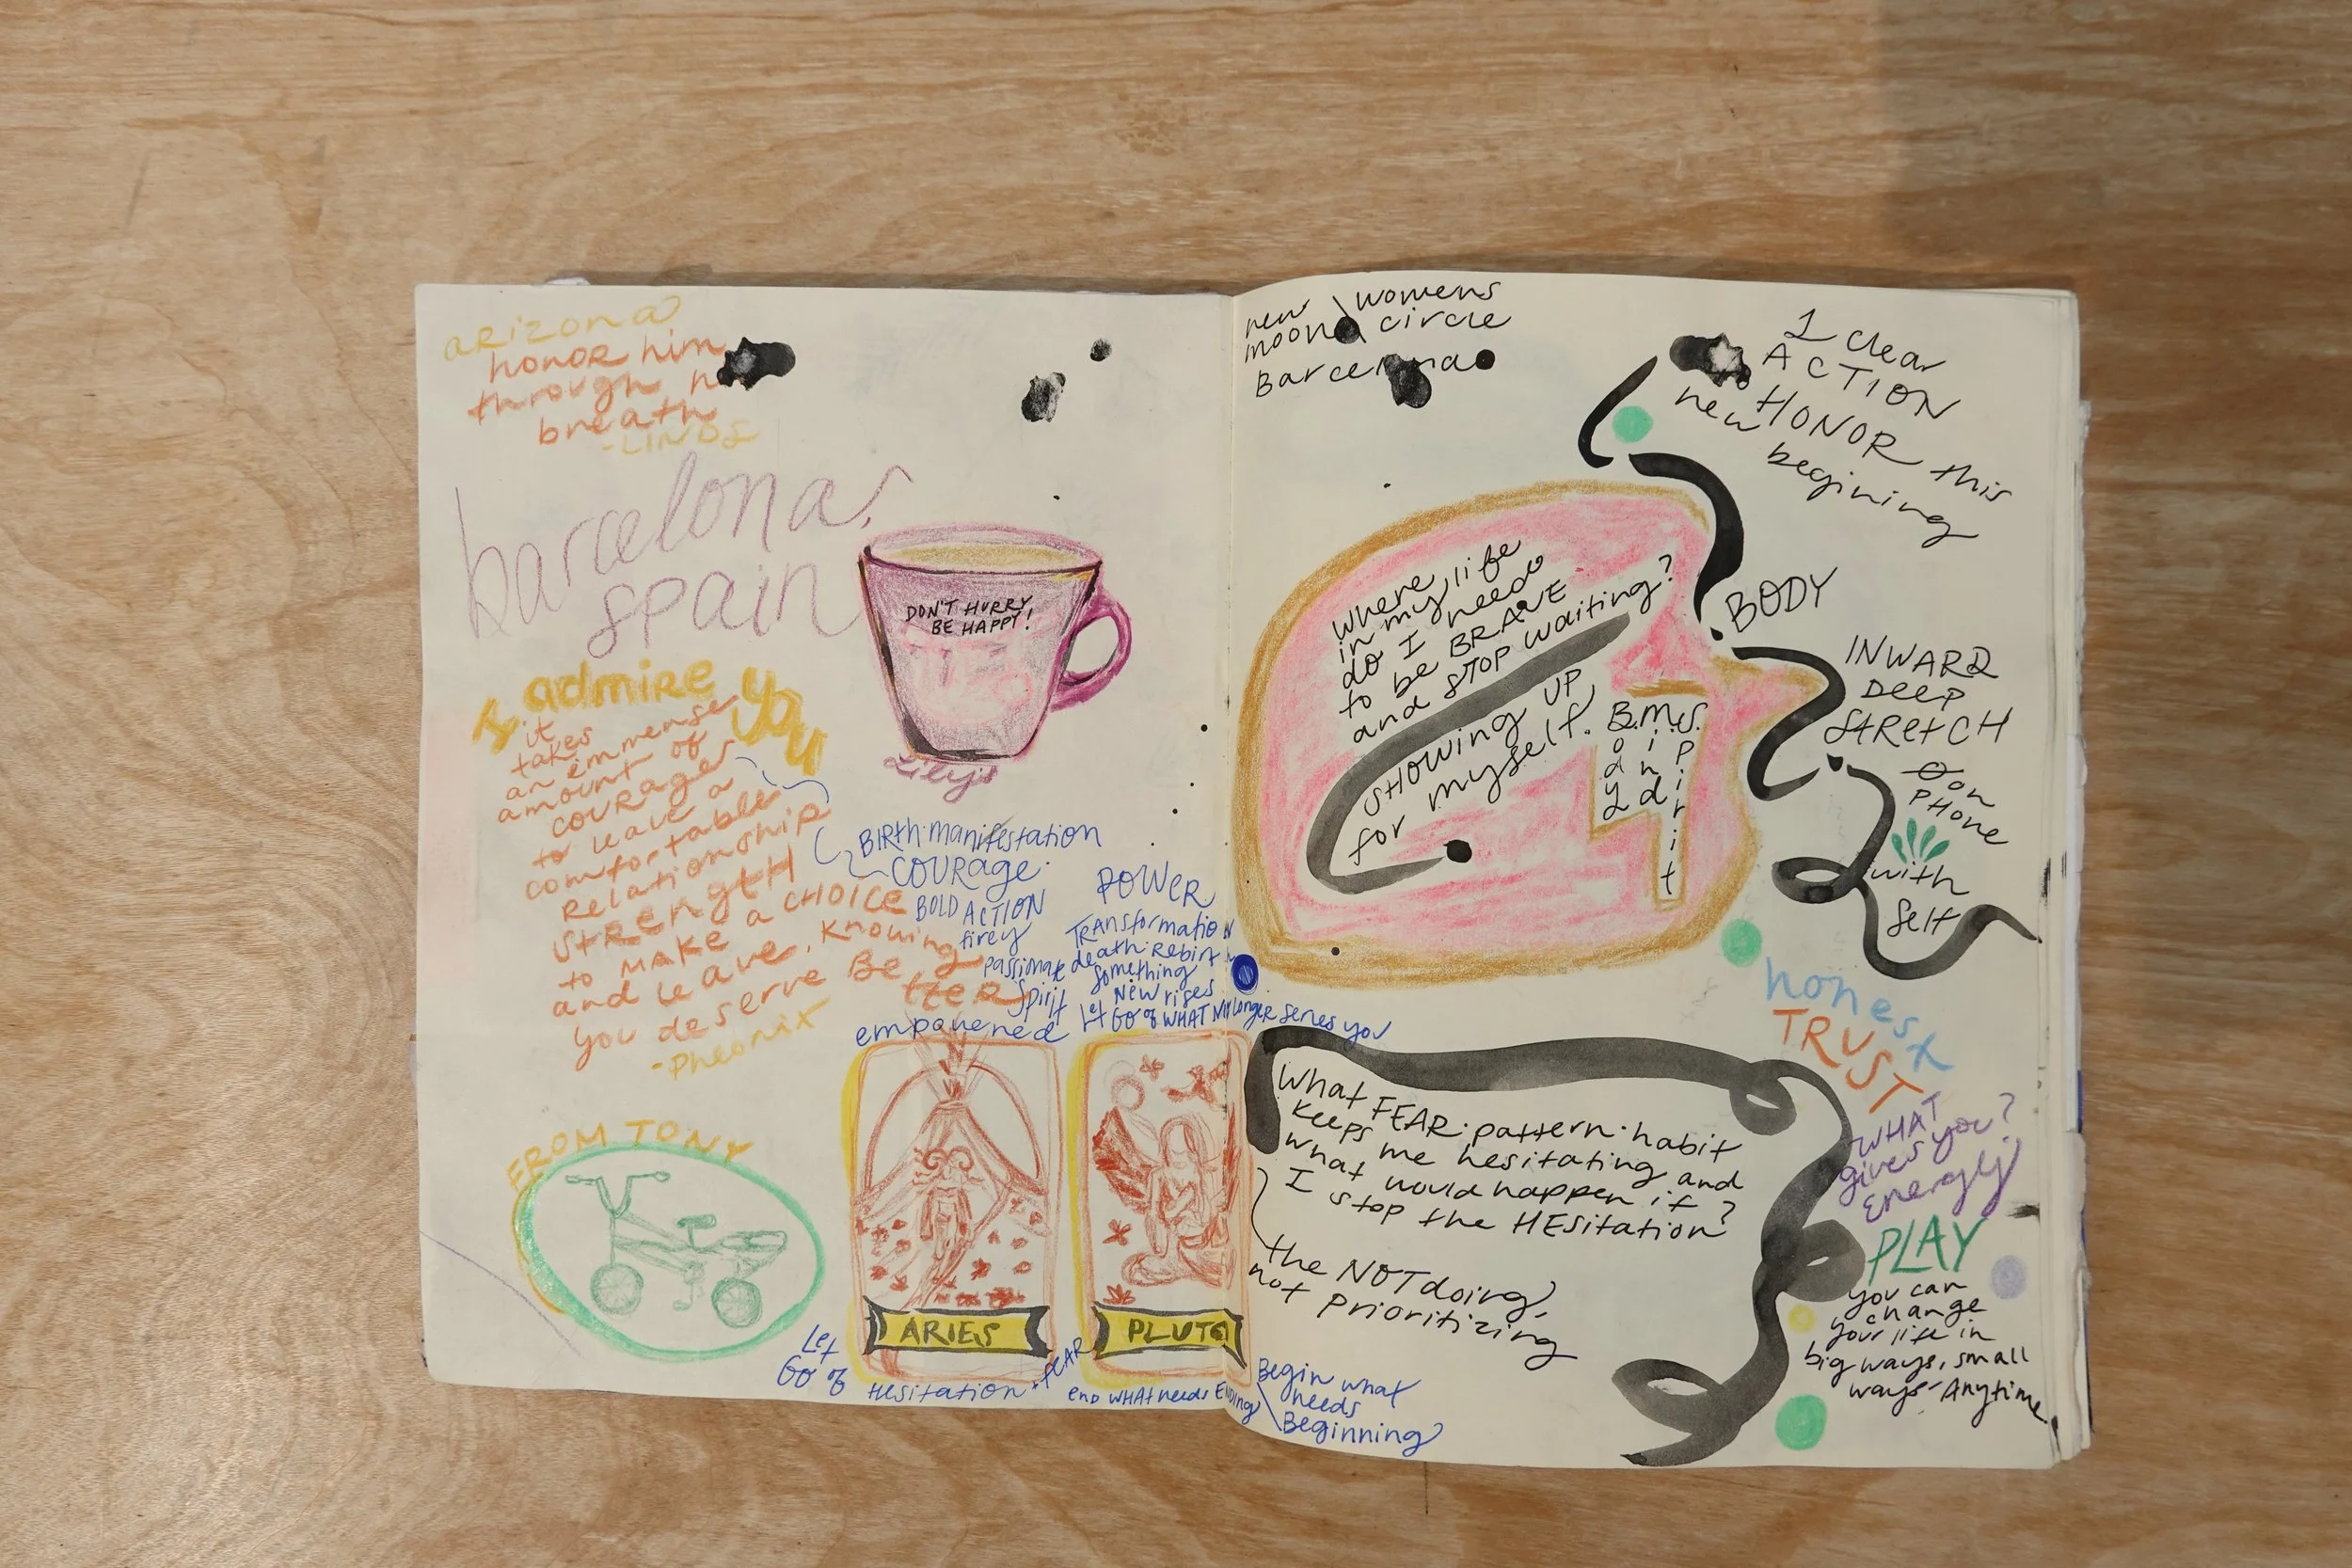 arizona
honor him
through h
breath
-LINDS
barcelona,
spain
DON'T HURRY
BE HAPPY!
Lily's
I admire you
it
takes
an immense
amount of
courage
to leave a
comfortable
Relationship
StRength
to MAKE a CHOICE
and leave, Knowing
you deserve Be
tteR
-Pheonix
BIRth·manifestation
COURage·
BOLD ACTION
firey
passionate
spirit
empowered
POWER
TRAnsformation
death·Rebirth
Something
New rises
Let
GO of WHAT NO longer serves you
FROM TONY
ARIES
PLUTO
Let
GO of Hesitation + FEAR
end WHAt needs ENDING
Begin what
needs
Beginning
new womens
moon circle
Barcelona
1 clear
ACTION
to HONOR this
new begining
where
in my life
do I need
to be BRAVE
and STOP waiting?
SHOWING UP
for myself.
B.M.S.
Body
mind
Spirit
BODY
INWARD
Deep
StRetCH
on
PHone
with
Self
honest
TRUST
WHAT
gives you?
Energy
PLAY
you can
change
your life in
big ways, small
ways Anytime
What FEAR·pattern·habit
keeps me hesitating and
what would happen if
I stop the HESitation?
the NOT doing,
not Prioritizing